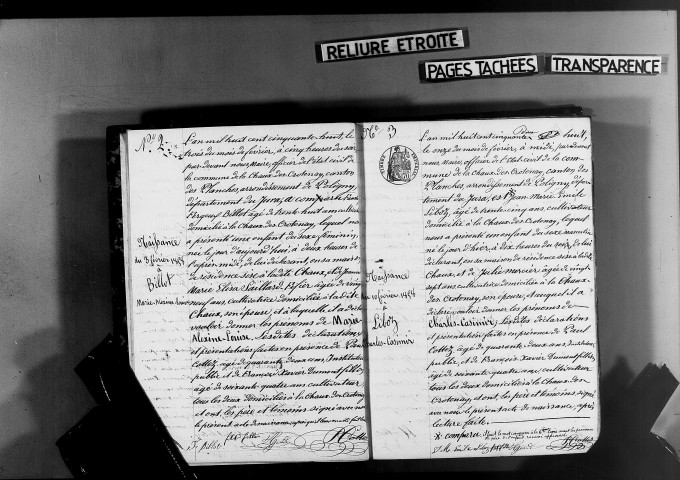 RELIURE ETROITE
PAGES TACHÉES
TRANSPARENCE
Nº 2
Naissance
du 3 février 1858
à
Billot
Marie-Alxine-Louise
L'an mil huit cent cinquante-huit, le
trois du mois de février, à cinq heures du soir
par-devant nous Maire, officier de l'état civil de
la commune de la Chaux des Crotenay, canton
des Planches, arrondissement de Poligny,
département du Jura, a comparu
Billot âgé de trente-huit ans
domicilié à la Chaux des Crotenay, lequel nous
a présenté une enfant du sexe féminin,
née le jour d'aujourd'hui, à deux heures
de lui déclarant, en sa maison
de résidence sise à la dite Chaux, et de Jeanne
Marie
neuf ans, cultivatrice domiciliée à la dite
Chaux, son épouse; et à laquelle il a déclaré
vouloir donner les prénoms de Marie-
Alxine-Louise. Lesdites déclarations
et présentation faites en présence de Paul
Cottez, âgé de quarante-deux ans, Instituteur
public, et de François Xavier Dumont fillez,
âgé de soixante-quatre ans, cultivateur
tous les deux domiciliés à la Chaux des Crotenay
et ont, les père et témoins signé avec nous
le présent acte de naissance, après
Nº 3
Naissance
du 10 février 1858
à
Léboz
Charles-Casimir
L'an mil huit cent cinquante huit,
le onze du mois de février, à midi, par-devant
nous Maire, officier de l'état civil de la com-
mune de la Chaux des Crotenay, canton des
Planches, arrondissement de Poligny, dépar-
tement du Jura, est Jean Marie Emile
Léboz, âgé de trente-cinq ans, cultivateur
domicilié à la Chaux des Crotenay, lequel
nous a présenté un enfant du sexe masculin
né le jour d'hier, à dix heures du soir, de lui
déclarant, en sa maison de résidence sise à la dite
Chaux, et de Julie Mercier, âgée de vingt
sept ans cultivatrice domiciliée à la Chaux
des Crotenay, son épouse; et auquel il a
déclaré vouloir donner les prénoms de
Charles-Casimir. Lesdites déclarations
et présentation faites en présence de Paul
Cottez, âgé de quarante-deux ans, Instituteur
public, et de François Xavier Dumont fillez,
âgé de soixante-quatre ans, cultivateur
tous les deux domiciliés à la Chaux des
Crotenay, et ont, les père et témoins, signé
avec nous le présent acte de naissance, après
lecture faite.
* comparu